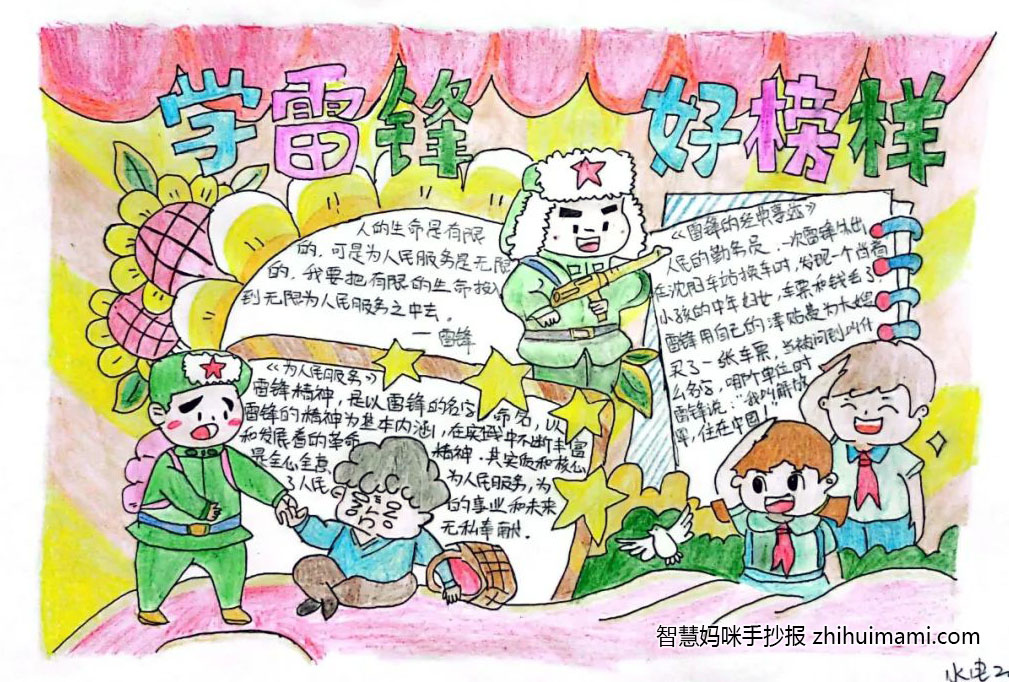 学雷锋 好榜样
人的生命是有限
的，可是为人民服务是无限
的，我要把有限的生命投入
到无限为人民服务之中去。
—雷锋
《为人民服务》
雷锋精神，是以雷锋的名字命名，以
雷锋的精神为基本内涵，在实践中不断丰富
和发展着的革命精神，其实质和核心
是全心全意为人民服务，为
了人民的事业和未来
无私奉献。
《雷锋的经典事迹》
人民的勤务员，一次雷锋外出
在沈阳车站换车时，发现一个背着
小孩的中年妇女，车票和钱丢了
雷锋用自己的津贴费为大嫂
买了一张车票，当被问到叫什
么名字，哪个单位时
雷锋说：“我叫解放
军，住在中国！”
智慧妈咪手抄报 zhihuimami.com